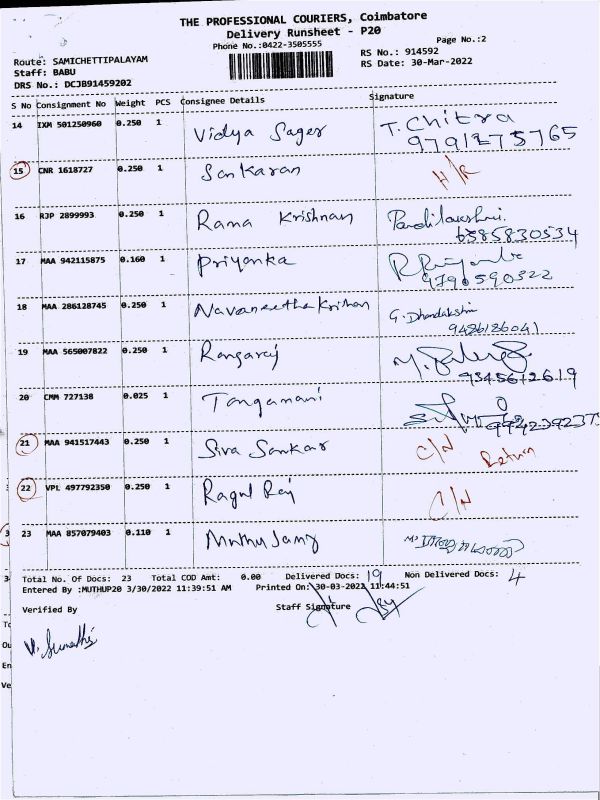 THE PROFESSIONAL COURIERS, Coimbatore
Delivery Runsheet - P20
Phone No.:0422-3505555 Page No.:2
Route: SAMICHETTIPALAYAM RS No.: 914592
Staff: BABU RS Date: 30-Mar-2022
DRS No.: DCJB91459202
S No Consignment No Weight PCS Consignee Details Signature
14 IXM 501250960 0.250 1 Vidya Sager T. Chitra
9791275765
15 CNR 1618727 0.250 1 Sankaran H/R
16 RJP 2899993 0.250 1 Rama Krishnan
6385830534
17 MAA 942115875 0.160 1 Priyanka
9790590322
18 MAA 286128745 0.250 1 Navaneetha Krishnan G. Dhandakshmi
9426126041
19 MAA 565007822 0.250 1 Rangaraj
9345612619
20 CMM 727138 0.025 1 Tangamani
21 MAA 941517443 0.250 1 Siva Sankar C/N Return
22 VPL 497792350 0.250 1 Ragul Raj C/N
23 MAA 857079403 0.110 1 Muthu Samy
Total No. Of Docs: 23 Total COD Amt: 0.00 Delivered Docs: 19 Non Delivered Docs: 4
Entered By :MUTHUP20 3/30/2022 11:39:51 AM Printed On: 30-03-2022 11:44:51
Verified By Staff Signature